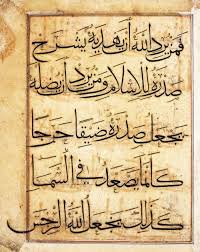 فمن يرد الله أن يهديه يشرح
صدره للإسلام ومن يرد أن يضله
يجعل صدره ضيقا حرجا
كأنما يصعد في السما
كذلك يجعل الله الرجس